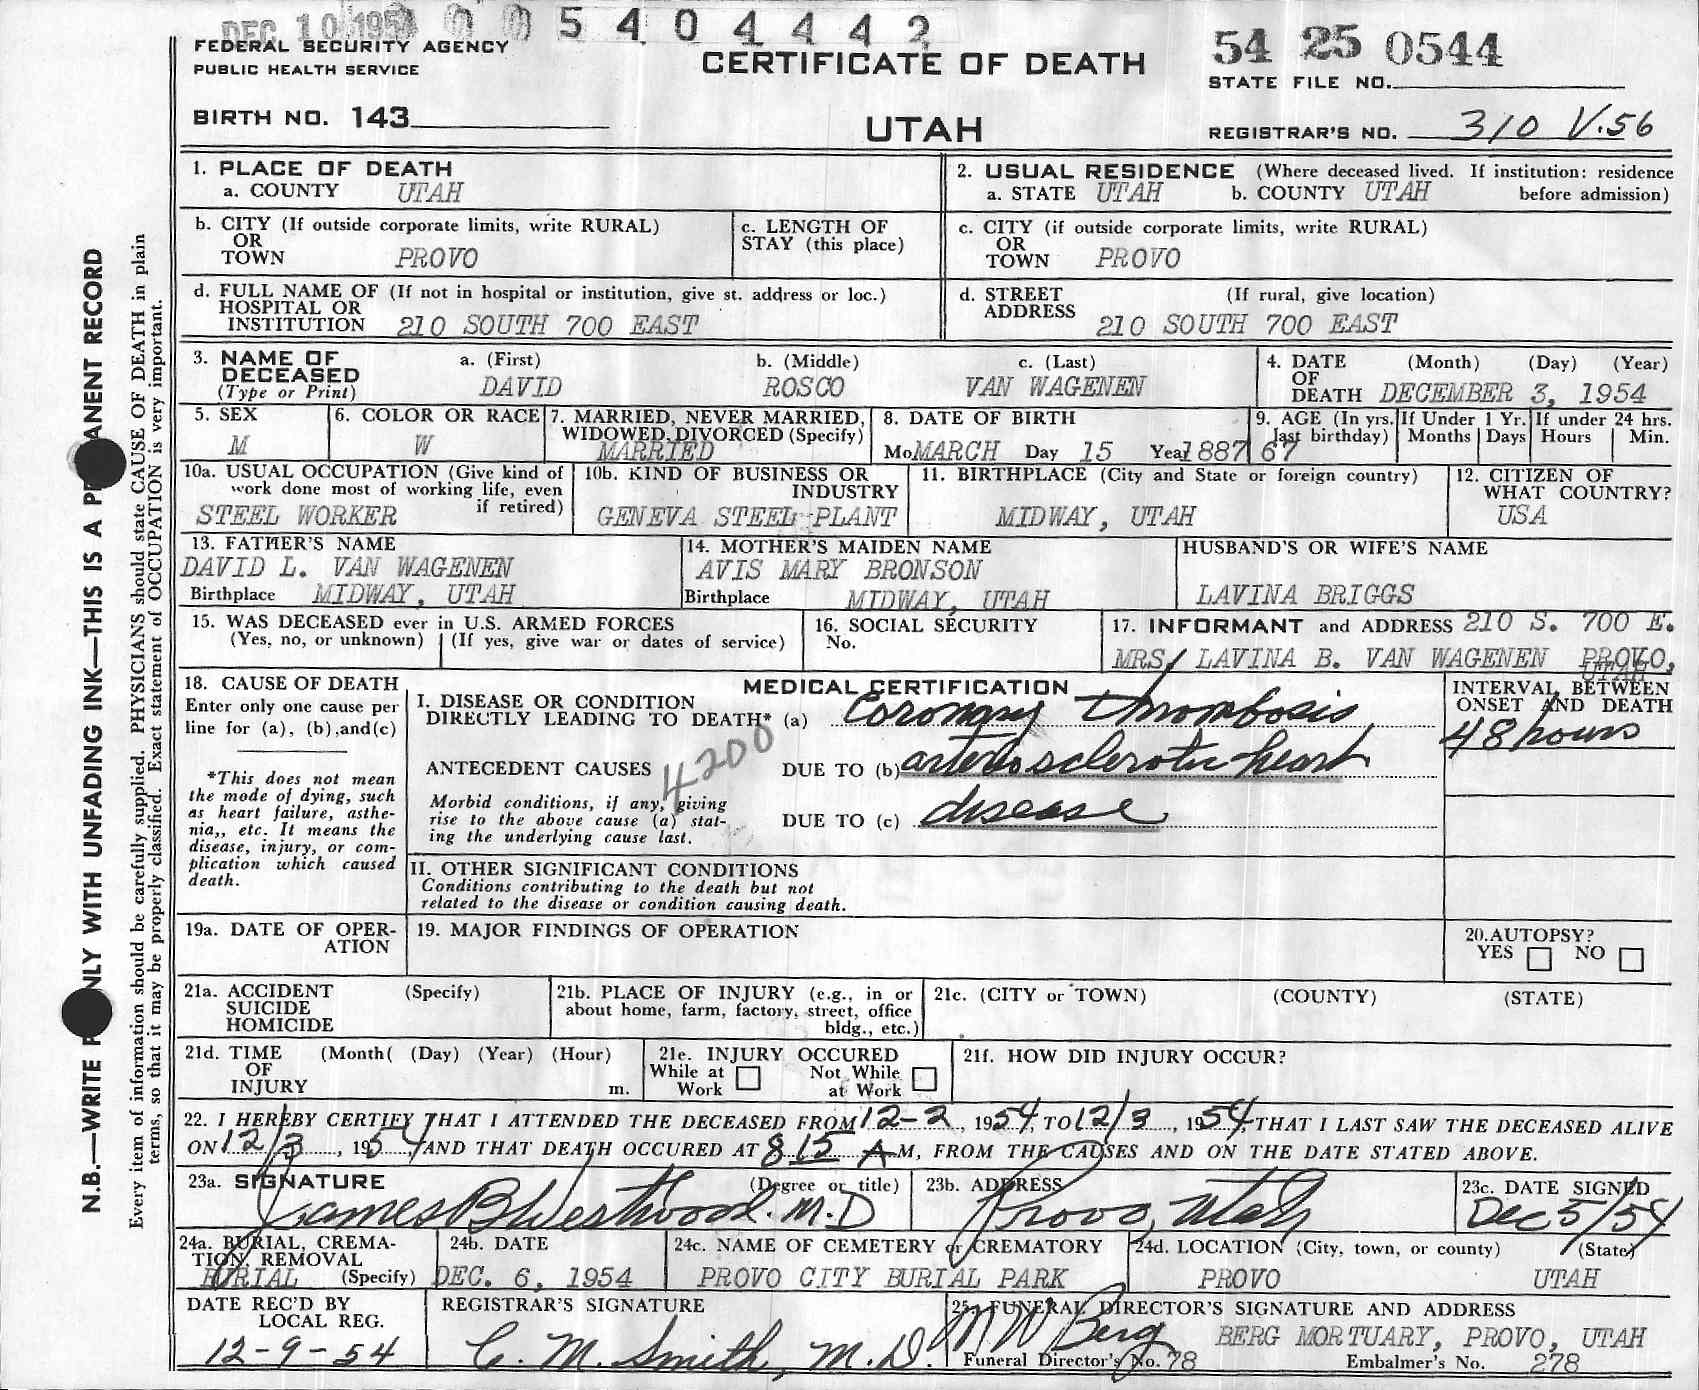 DEC 10 1954 5 4 0 4 4 4 2
FEDERAL SECURITY AGENCY
PUBLIC HEALTH SERVICE
CERTIFICATE OF DEATH
54 25 0544
STATE FILE NO.
BIRTH NO. 143
UTAH
REGISTRAR'S NO. 310 V.56
1. PLACE OF DEATH
a. COUNTY UTAH
2. USUAL RESIDENCE (Where deceased lived. If institution: residence
a. STATE UTAH b. COUNTY UTAH before admission)
b. CITY (If outside corporate limits, write RURAL)
OR
TOWN PROVO
c. LENGTH OF
STAY (this place)
c. CITY (if outside corporate limits, write RURAL)
OR
TOWN PROVO
d. FULL NAME OF (If not in hospital or institution, give st. address or loc.)
HOSPITAL OR
INSTITUTION 210 SOUTH 700 EAST
d. STREET (If rural, give location)
ADDRESS
210 SOUTH 700 EAST
3. NAME OF
DECEASED
(Type or Print)
a. (First)
DAVID
b. (Middle)
ROSCO
c. (Last)
VAN WAGENEN
4. DATE (Month) (Day) (Year)
OF
DEATH DECEMBER 3, 1954
5. SEX
M
6. COLOR OR RACE
W
7. MARRIED, NEVER MARRIED,
WIDOWED, DIVORCED (Specify)
MARRIED
8. DATE OF BIRTH
Mo MARCH Day 15 Year 1887
9. AGE (In yrs.
last birthday)
67
If Under 1 Yr.
Months Days
If under 24 hrs.
Hours Min.
10a. USUAL OCCUPATION (Give kind of
work done most of working life, even
if retired)
STEEL WORKER
10b. KIND OF BUSINESS OR
INDUSTRY
GENEVA STEEL PLANT
11. BIRTHPLACE (City and State or foreign country)
MIDWAY, UTAH
12. CITIZEN OF
WHAT COUNTRY?
USA
13. FATHER'S NAME
DAVID L. VAN WAGENEN
Birthplace MIDWAY, UTAH
14. MOTHER'S MAIDEN NAME
AVIS MARY BRONSON
Birthplace MIDWAY, UTAH
HUSBAND'S OR WIFE'S NAME
LAVINA BRIGGS
15. WAS DECEASED ever in U.S. ARMED FORCES
(Yes, no, or unknown) (If yes, give war or dates of service)
16. SOCIAL SECURITY
No.
17. INFORMANT and ADDRESS 210 S. 700 E.
MRS/ LAVINA B. VAN WAGENEN PROVO,
UTAH
18. CAUSE OF DEATH
Enter only one cause per
line for (a), (b),and(c)
*This does not mean
the mode of dying, such
as heart failure, asthe-
nia,, etc. It means the
disease, injury, or com-
plication which caused
death.
MEDICAL CERTIFICATION
I. DISEASE OR CONDITION
DIRECTLY LEADING TO DEATH* (a) Coronary thrombosis
4200
ANTECEDENT CAUSES DUE TO (b) arteriosclerotic heart
Morbid conditions, if any, giving
rise to the above cause (a) stat-
ing the underlying cause last.
DUE TO (c) disease
INTERVAL BETWEEN
ONSET AND DEATH
48 hours
II. OTHER SIGNIFICANT CONDITIONS
Conditions contributing to the death but not
related to the disease or condition causing death.
19a. DATE OF OPER-
ATION
19. MAJOR FINDINGS OF OPERATION
20.AUTOPSY?
YES NO
21a. ACCIDENT (Specify)
SUICIDE
HOMICIDE
21b. PLACE OF INJURY (e.g., in or
about home, farm, factory, street, office
bldg., etc.)
21c. (CITY or TOWN) (COUNTY) (STATE)
21d. TIME (Month( (Day) (Year) (Hour)
OF
INJURY m.
21e. INJURY OCCURED
While at Not While
Work at Work
21f. HOW DID INJURY OCCUR?
22. I HEREBY CERTIFY THAT I ATTENDED THE DECEASED FROM 12-2, 1954, TO 12/3, 1954, THAT I LAST SAW THE DECEASED ALIVE
ON 12/3, 1954 AND THAT DEATH OCCURED AT 8 15 A M, FROM THE CAUSES AND ON THE DATE STATED ABOVE.
23a. SIGNATURE (Degree or title)
James B Westwood. M.D
23b. ADDRESS
Provo, Utah
23c. DATE SIGNED
Dec 5/54
24a. BURIAL, CREMA-
TION, REMOVAL
BURIAL (Specify)
24b. DATE
DEC. 6, 1954
24c. NAME OF CEMETERY or CREMATORY
PROVO CITY BURIAL PARK
24d. LOCATION (City, town, or county) (State)
PROVO UTAH
DATE REC'D BY
LOCAL REG.
12-9-54
REGISTRAR'S SIGNATURE
C. M. Smith, M.D.
25. FUNERAL DIRECTOR'S SIGNATURE AND ADDRESS
Berg BERG MORTUARY, PROVO, UTAH
Funeral Director's No. 78 Embalmer's No. 278
N.B.—WRITE ONLY WITH UNFADING INK—THIS IS A PERMANENT RECORD
Every item of information should be carefully supplied. PHYSICIANS should state CAUSE OF DEATH in plain
terms, so that it may be properly classified. Exact statement of OCCUPATION is very important.